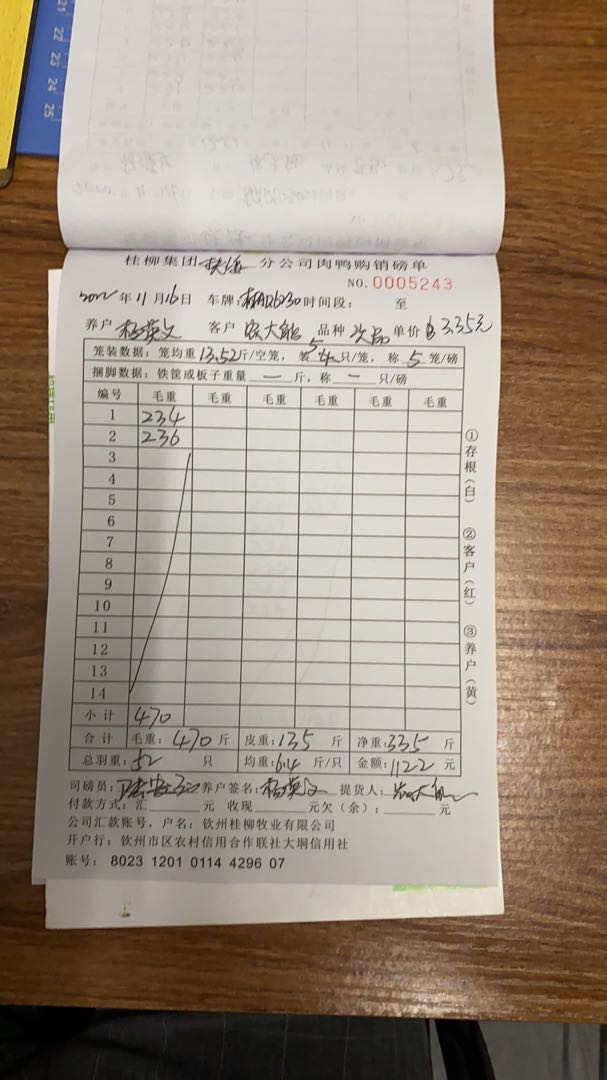 21
22
23
24
25
桂柳集团 分公司肉鸭购销磅单
NO.0005243
2022年11月16日 车牌: 时间段: 至
养户 杨英文 客户 农大能 品种 次品 单价 3.35元
笼装数据:笼均重13.52斤/空笼, 装5 4只/笼, 称5笼/磅
捆脚数据:铁筐或板子重量 — 斤,称 — 只/磅
编号 毛重 毛重 毛重 毛重 毛重 毛重
1 234
2 236
3
4
5
6
7
8
9
10
11
12
13
14
小计 470
合计 毛重:470斤 皮重:135斤 净重:335斤
总羽重:52只 均重:6.4斤/只 金额:1122元
①存根(白)
②客户(红)
③养户(黄)
司磅员: 养户签名:杨英文 提货人:农大能
付款方式:汇 元 收现 元欠(余): 元
公司汇款账号,户名:钦州桂柳牧业有限公司
开户行:钦州市区农村信用合作联社大垌信用社
账号: 8023 1201 0114 4296 07